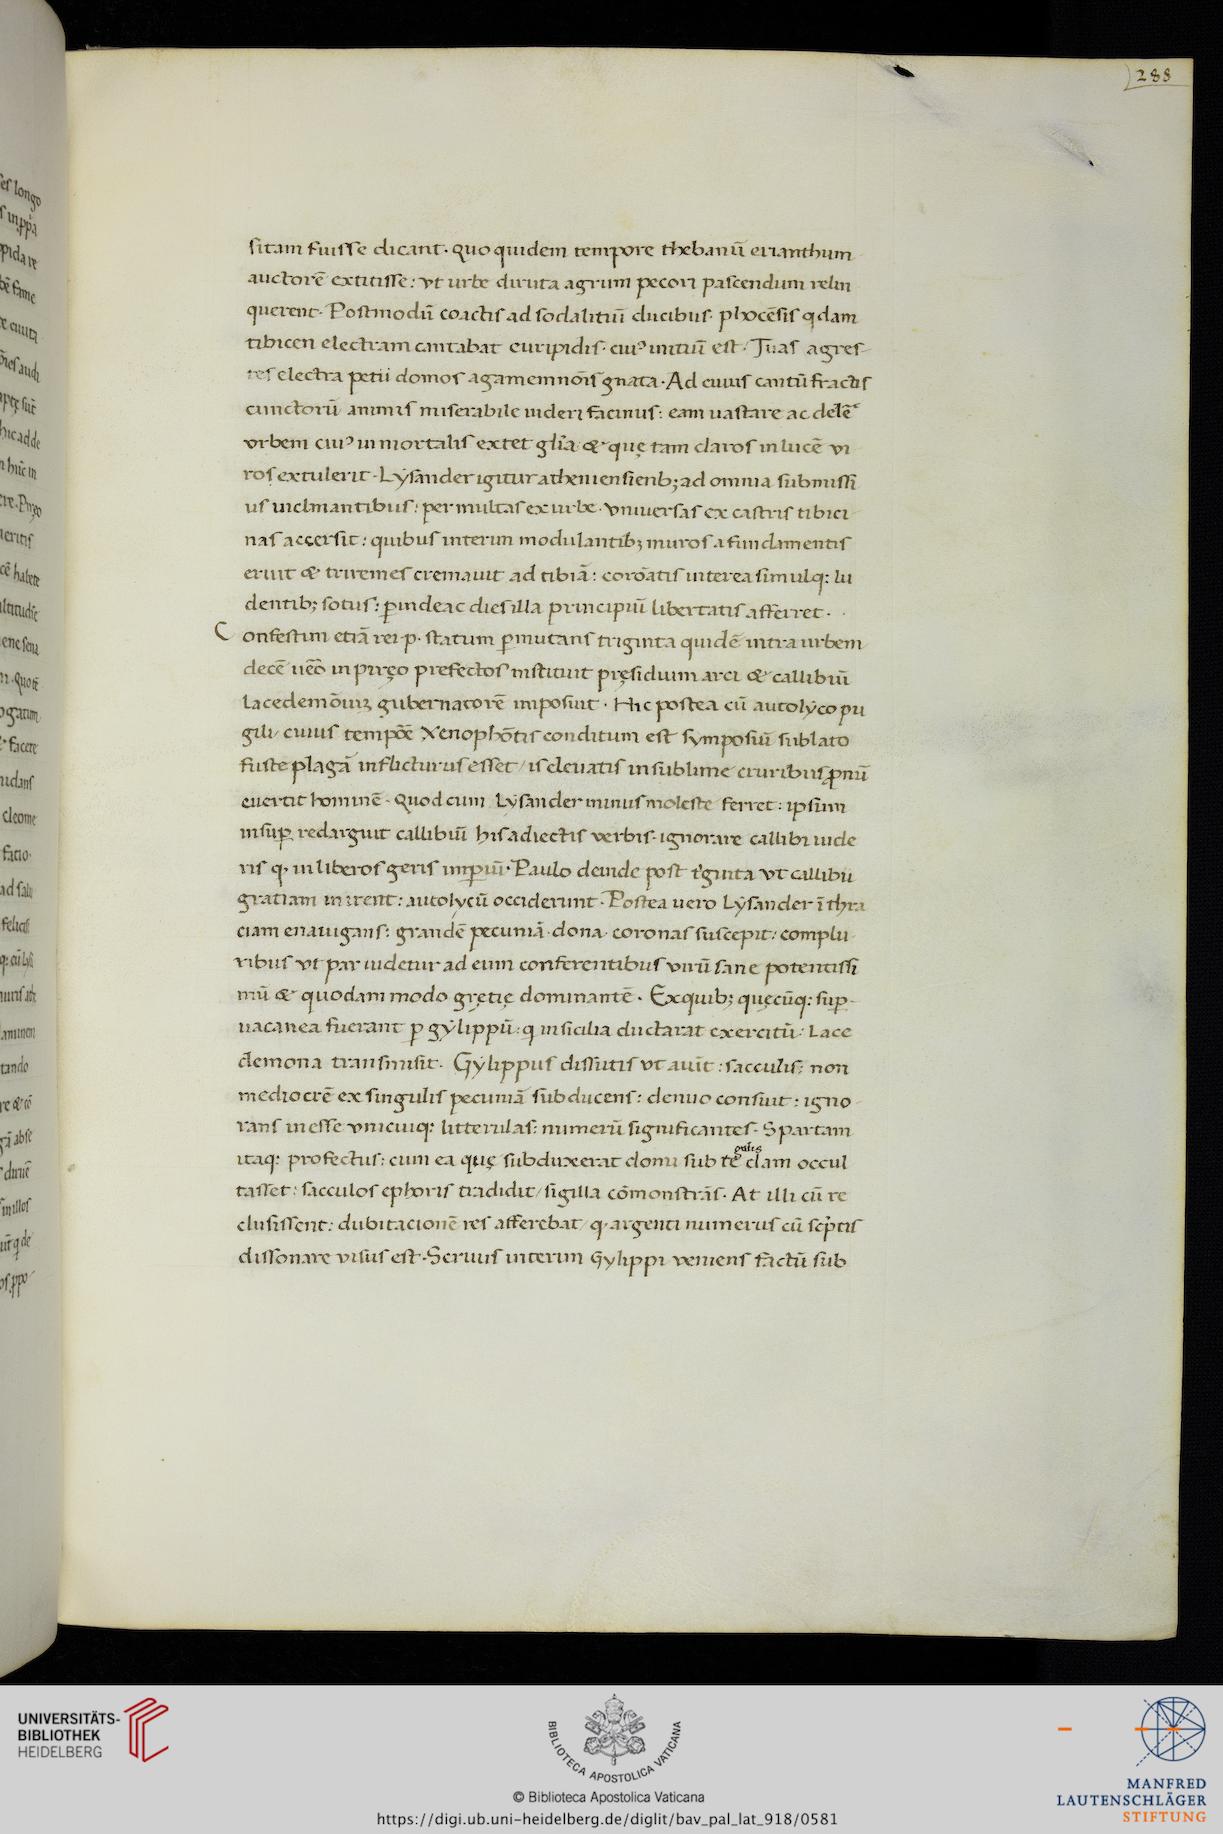 288
sitam fuisse dicant. quo quidem tempore thebanū erianthum
auctorē extitisse: vt urbe diruta agrum pecori pascendum relin
querent. Postmodū coactis ad sodalitiū ducibus. phocēsis qdam
tibicen electram cantabat euripidis. cuiꝰ initiū est. Tuas agres-
tes electra petii domos agamemnōis gnata. Ad cuius cantū fractis
cunctorū animis miserabile uideri facinus: eam uastare ac delē
vrbem cuiꝰ inmortalis extet glīa & quę tam claros in lucē vi
ros extulerit. Lẏsander igitur atheniensienb; ad omnia submissi
us inclinantibus: per multas ex urbe. vniuersas ex castris tibici
nas accersit: quibus interim modulantib; muros a fundamentis
eruit & triremes cremauit ad tibiā: coroātis interea simulq: lu
dentib; sotus: ꝑinde ac dies illa principiū libertatis afferret.
Confestim etiā rei.p. statum ꝑmutans triginta quidē intra urbem
decē uēo in piręo prefectos instituit pręsidium arci & callibiū
lacedemōiuꝫ gubernatorē imposuit. Hic postea cū autolẏco pu
gili/ cuius tempōe Xenophōtis conditum est sẏmposiū sublato
fuste plagā inflicturus esset/ is eleuatis in sublime cruribus ꝓnū
euertit hominē. Quod cum Lẏsander minus moleste ferret: ipsum
insuꝑ redarguit callibiū his adiectis verbis. ignorare callibi uide
ris q. in liberos geris imꝑiū. Paulo deinde post tͥginta vt callibii
gratiam inirent: autolycū occiderunt. Postea uero Lẏsander ī thra
ciam enauigans: grandē pecuniā. dona. coronas suscepit: complu
ribus vt par uidetur ad eum conferentibus virū sane potentissi
mū & quodam modo gręcię dominantē. Ex quib; quęcūq: suꝑ-
uacanea fuerant ꝑ gẏlippū: q in sicilia ductarat exercitū: Lace
demona transmisit. Gẏlippus dissutis vt aiūt: sacculis: non
mediocrē ex singulis pecuniā subducens: denuo consuit: igno
rans inesse vnicuiq: litterulas: numerū significantes. Spartam
itaq: profectus: cum ea quę subduxerat domi sub tē gulis clam occul
tasset: sacculos ephoris tradidit/ sigilla cōmonstrās. At illi cū re
clusissent: dubitacionē res afferebat/ q. argenti numerus cū scͥptis
dissonare visus est. Seruus interim Gylippi veniens factū sub
UNIVERSITÄTS-
BIBLIOTHEK
HEIDELBERG
BIBLIOTECA APOSTOLICA VATICANA
© Biblioteca Apostolica Vaticana
https://digi.ub.uni-heidelberg.de/diglit/bav_pal_lat_918/0581
MANFRED
LAUTENSCHLÄGER
STIFTUNG